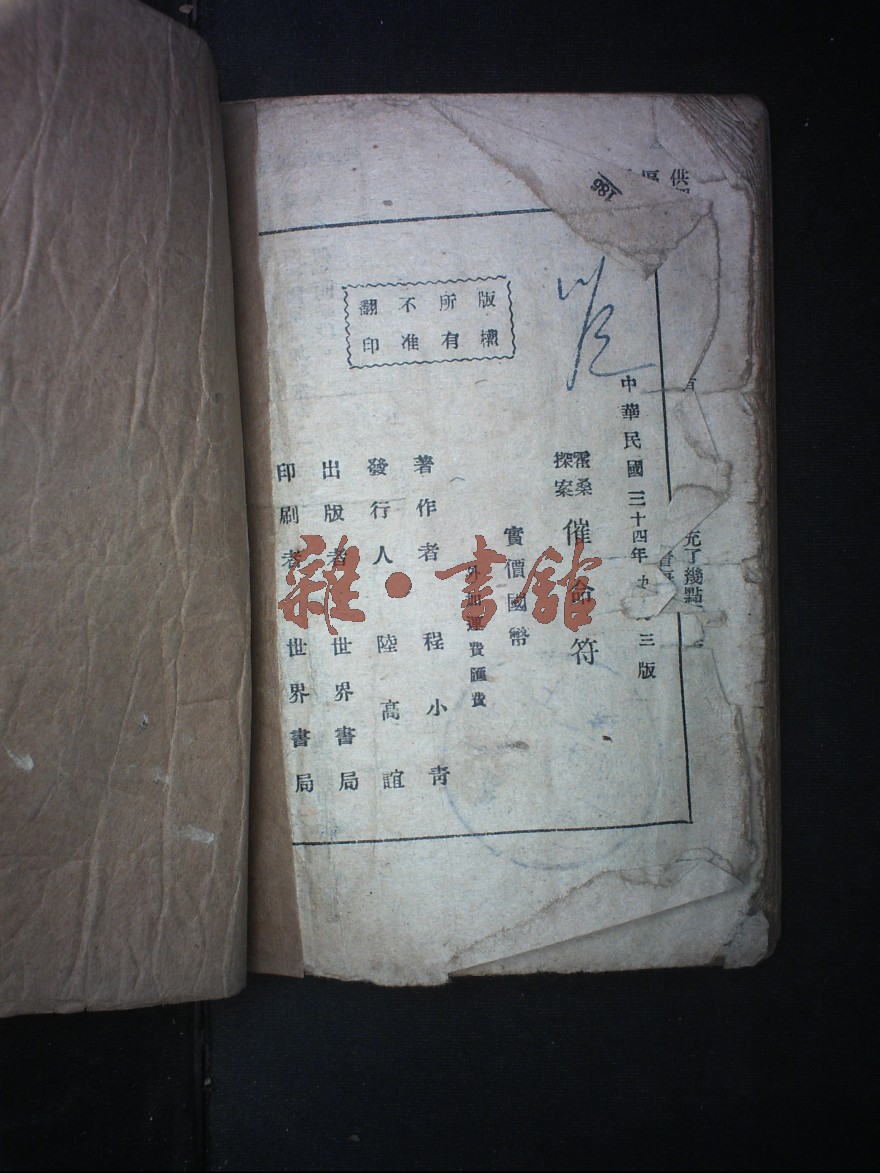 供
186
中華民國三十四年 三版
充了幾點
霍桑
探案
催命符
實價國幣
外加運費匯費
著作者 程小青
發行人 陸高誼
出版者 世界書局
印刷者 世界書局
版權
所有
不准
翻印
雜·書館